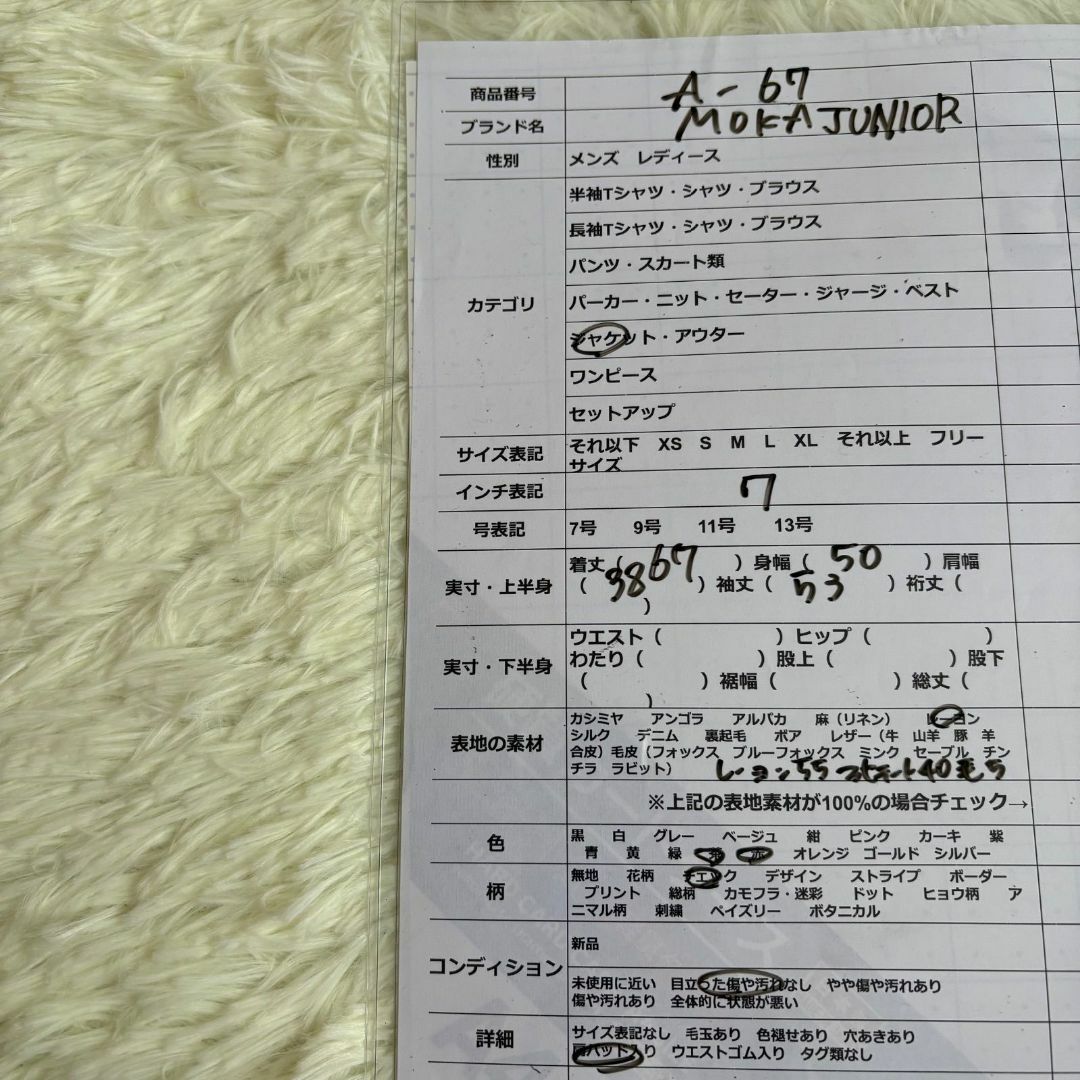 商品番号 A-67
ブランド名 MOKA JUNIOR
性別 メンズ レディース
半袖Tシャツ・シャツ・ブラウス
長袖Tシャツ・シャツ・ブラウス
パンツ・スカート類
カテゴリ パーカー・ニット・セーター・ジャージ・ベスト
ジャケット・アウター
ワンピース
セットアップ
サイズ表記 それ以下 XS S M L XL それ以上 フリー
サイズ
インチ表記 7
号表記 7号 9号 11号 13号
実寸・上半身 着丈( 67 )身幅( 50 )肩幅
( 38 )袖丈( 53 )裄丈(
)
実寸・下半身 ウエスト( )ヒップ( )
わたり( )股上( )股下
( )裾幅( )総丈(
)
表地の素材 カシミヤ アンゴラ アルパカ 麻(リネン) レーヨン
シルク デニム 裏起毛 ボア レザー(牛 山羊 豚 羊
合皮)毛皮(フォックス ブルーフォックス ミンク セーブル チン
チラ ラビット) レーヨン55 40毛5
※上記の表地素材が100%の場合チェック→
色 黒 白 グレー ベージュ 紺 ピンク カーキ 紫
青 黄 緑 茶 赤 オレンジ ゴールド シルバー
柄 無地 花柄 チェック デザイン ストライプ ボーダー
プリント 総柄 カモフラ・迷彩 ドット ヒョウ柄 ア
ニマル柄 刺繍 ペイズリー ボタニカル
コンディション 新品
未使用に近い 目立った傷や汚れなし やや傷や汚れあり
傷や汚れあり 全体的に状態が悪い
詳細 サイズ表記なし 毛玉あり 色褪せあり 穴あきあり
肩パット入り ウエストゴム入り タグ類なし